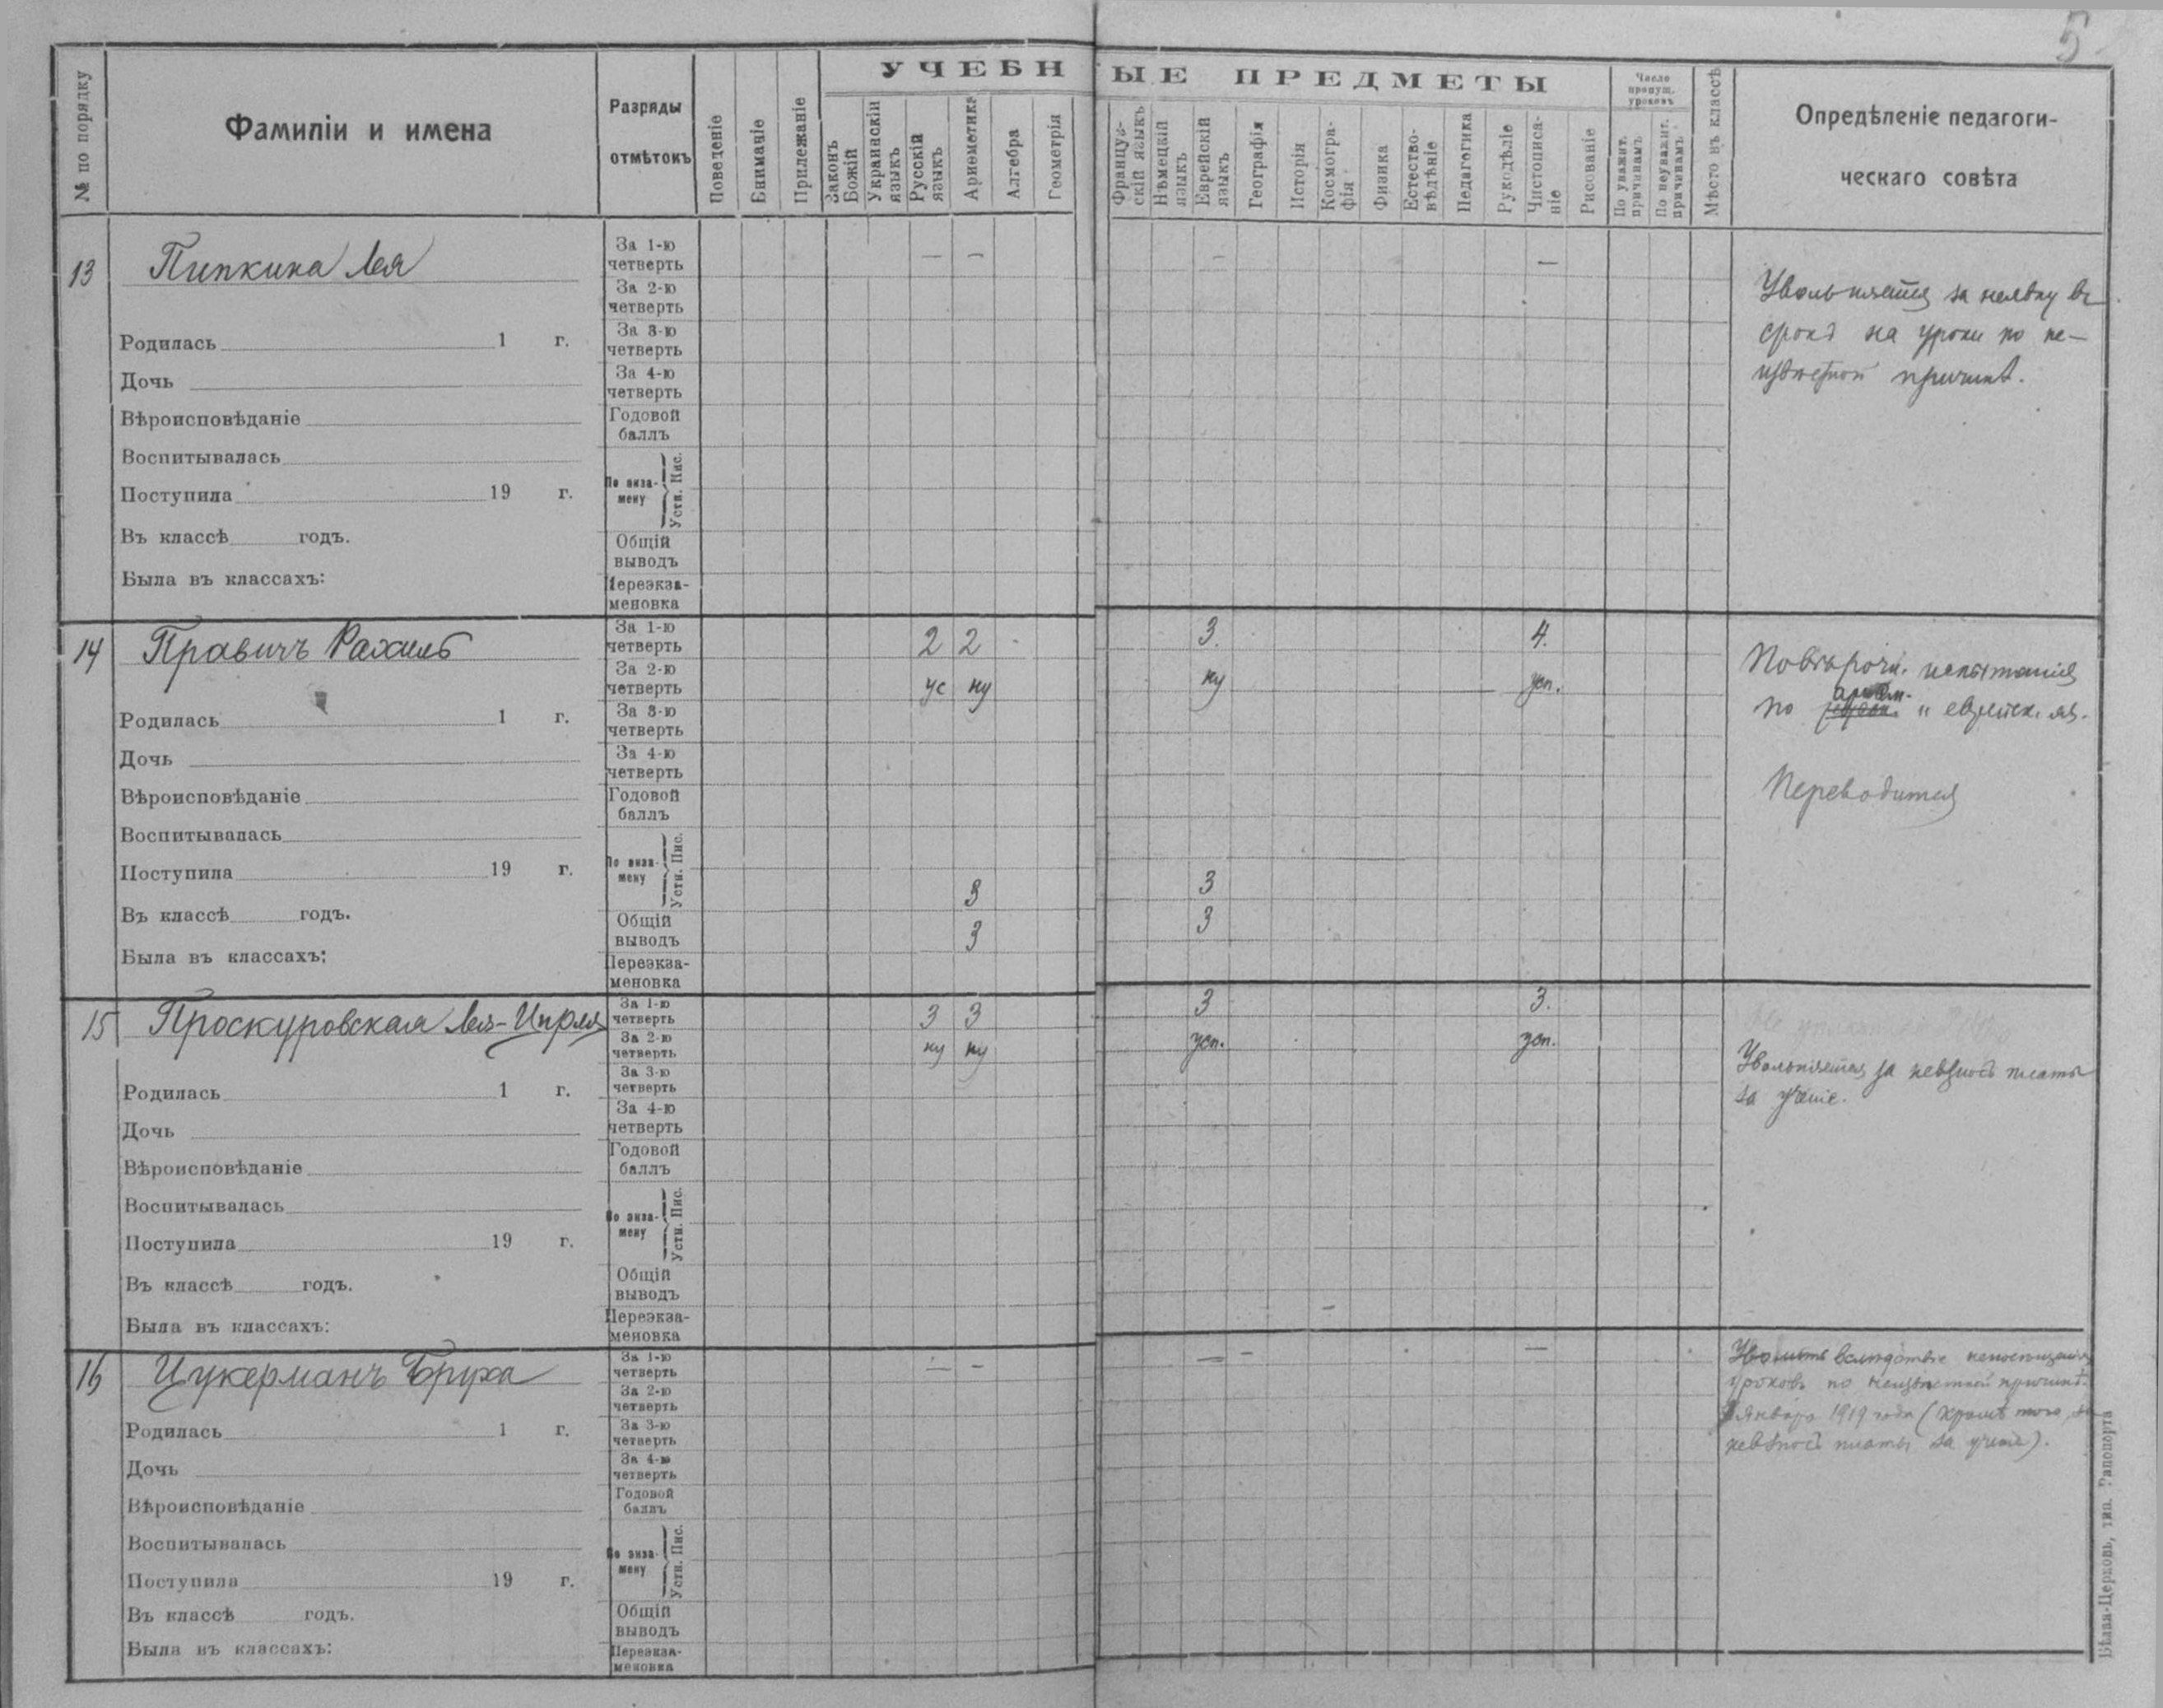 5
УЧЕБНЫЕ ПРЕДМЕТЫ
№ по порядку
Фамиліи и имена
Разряды
отмѣтокъ
Поведеніе
Вниманіе
Прилежаніе
Законъ Божій
Украинскій языкъ
Русскій языкъ
Ариѳметика
Алгебра
Геометрія
Француз-
скій языкъ
Нѣмецкій языкъ
Еврейскій языкъ
Географія
Исторія
Космогра-
фія
Физика
Естество-
вѣдѣніе
Педагогика
Рукодѣліе
Чистописа-
ніе
Рисованіе
Число
пропущ.
уроковъ
По уважит.
причинамъ
По неуважит.
причинамъ
Мѣсто въ классѣ
Опредѣленіе педагоги-
ческаго совѣта
13 Пипкина Лея
Родилась 1 г.
Дочь
Вѣроисповѣданіе
Воспитывалась
Поступила 19 г.
Въ классѣ годъ.
Была въ классахъ:
За 1-ю четверть — — — —
За 2-ю четверть
За 3-ю четверть
За 4-ю четверть
Годовой баллъ
По экза-
мену
Устн. Пис.
Общій выводъ
Переэкза-
меновка
Увольняется за неявку въ
срокъ на уроки по не-
извѣстной причинѣ.
14 Правичъ Рахиль
Родилась 1 г.
Дочь
Вѣроисповѣданіе
Воспитывалась
Поступила 19 г.
Въ классѣ годъ.
Была въ классахъ:
За 1-ю четверть 2 2 3. 4.
За 2-ю четверть ус ну ну усп.
За 3-ю четверть
За 4-ю четверть
Годовой баллъ
По экза-
мену
Устн. Пис.
3 3
Общій выводъ 3 3
Переэкза-
меновка
Повѣрочн. испытанія
по ариѳм. и еврейск. яз.
Переводится
15 Проскуровская Лея-Ципря
Родилась 1 г.
Дочь
Вѣроисповѣданіе
Воспитывалась
Поступила 19 г.
Въ классѣ годъ.
Была въ классахъ:
За 1-ю четверть 3 3 3 3.
За 2-ю четверть ну ну усп. усп.
За 3-ю четверть
За 4-ю четверть
Годовой баллъ
По экза-
мену
Устн. Пис.
Общій выводъ
Переэкза-
меновка
Увольняется за невзносъ платы
за ученіе.
16 Цукерманъ Бруха
Родилась 1 г.
Дочь
Вѣроисповѣданіе
Воспитывалась
Поступила 19 г.
Въ классѣ годъ.
Была въ классахъ:
За 1-ю четверть — — — —
За 2-ю четверть
За 3-ю четверть
За 4-ю четверть
Годовой баллъ
По экза-
мену
Устн. Пис.
Общій выводъ
Переэкза-
меновка
Уволить вслѣдствіе непосѣщенія
уроковъ по неизвѣстной причинѣ.
Января 1919 года (кромѣ того, за
невзносъ платы за ученіе).
Бѣлая-Церковь, тип. Рапопорта